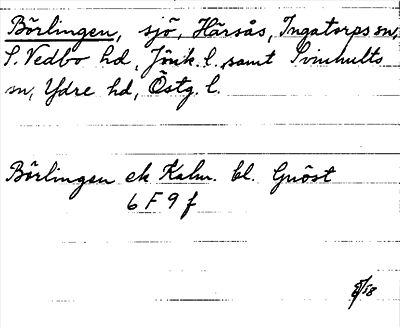 Börlingen, sjö, Härsås, Ingatorps sn,
S. Vedbo hd, Jönk. l. samt Svinhults
sn, Ydre hd, Östg. l.
Börlingen ek Kalm. bl. Gnöst
6 F 9 f